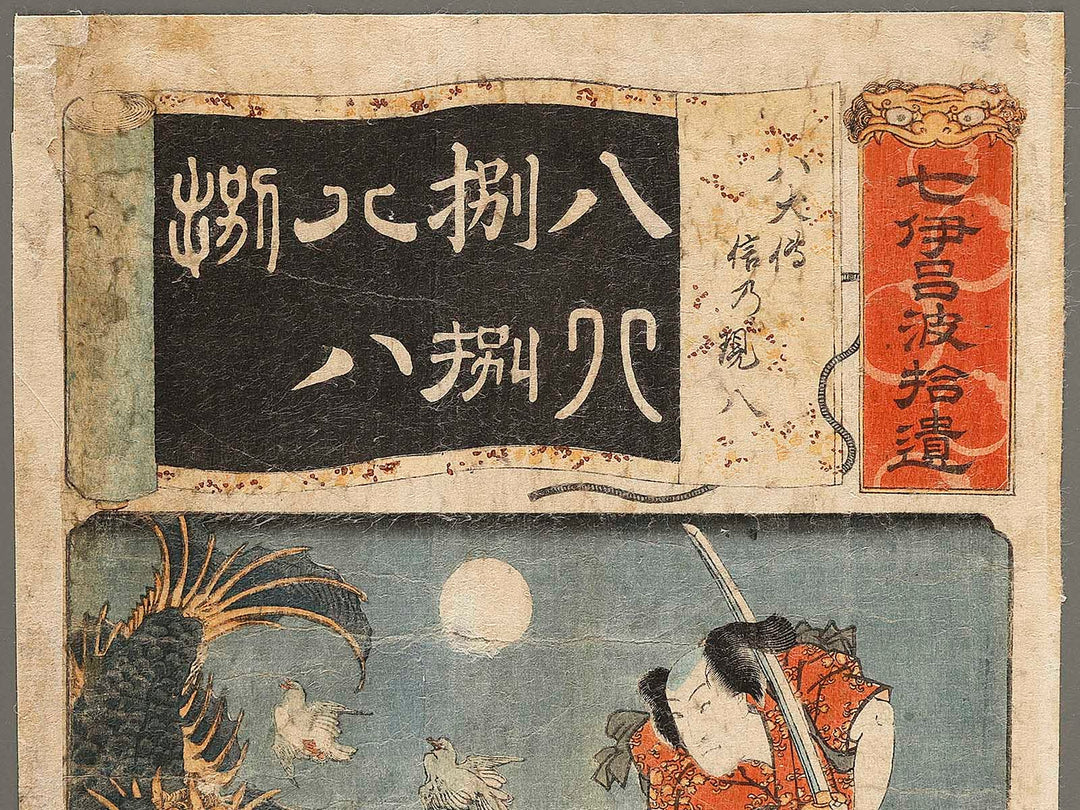 七伊呂波拾遺
八犬傳
信乃現八
八捌八捌
八捌八